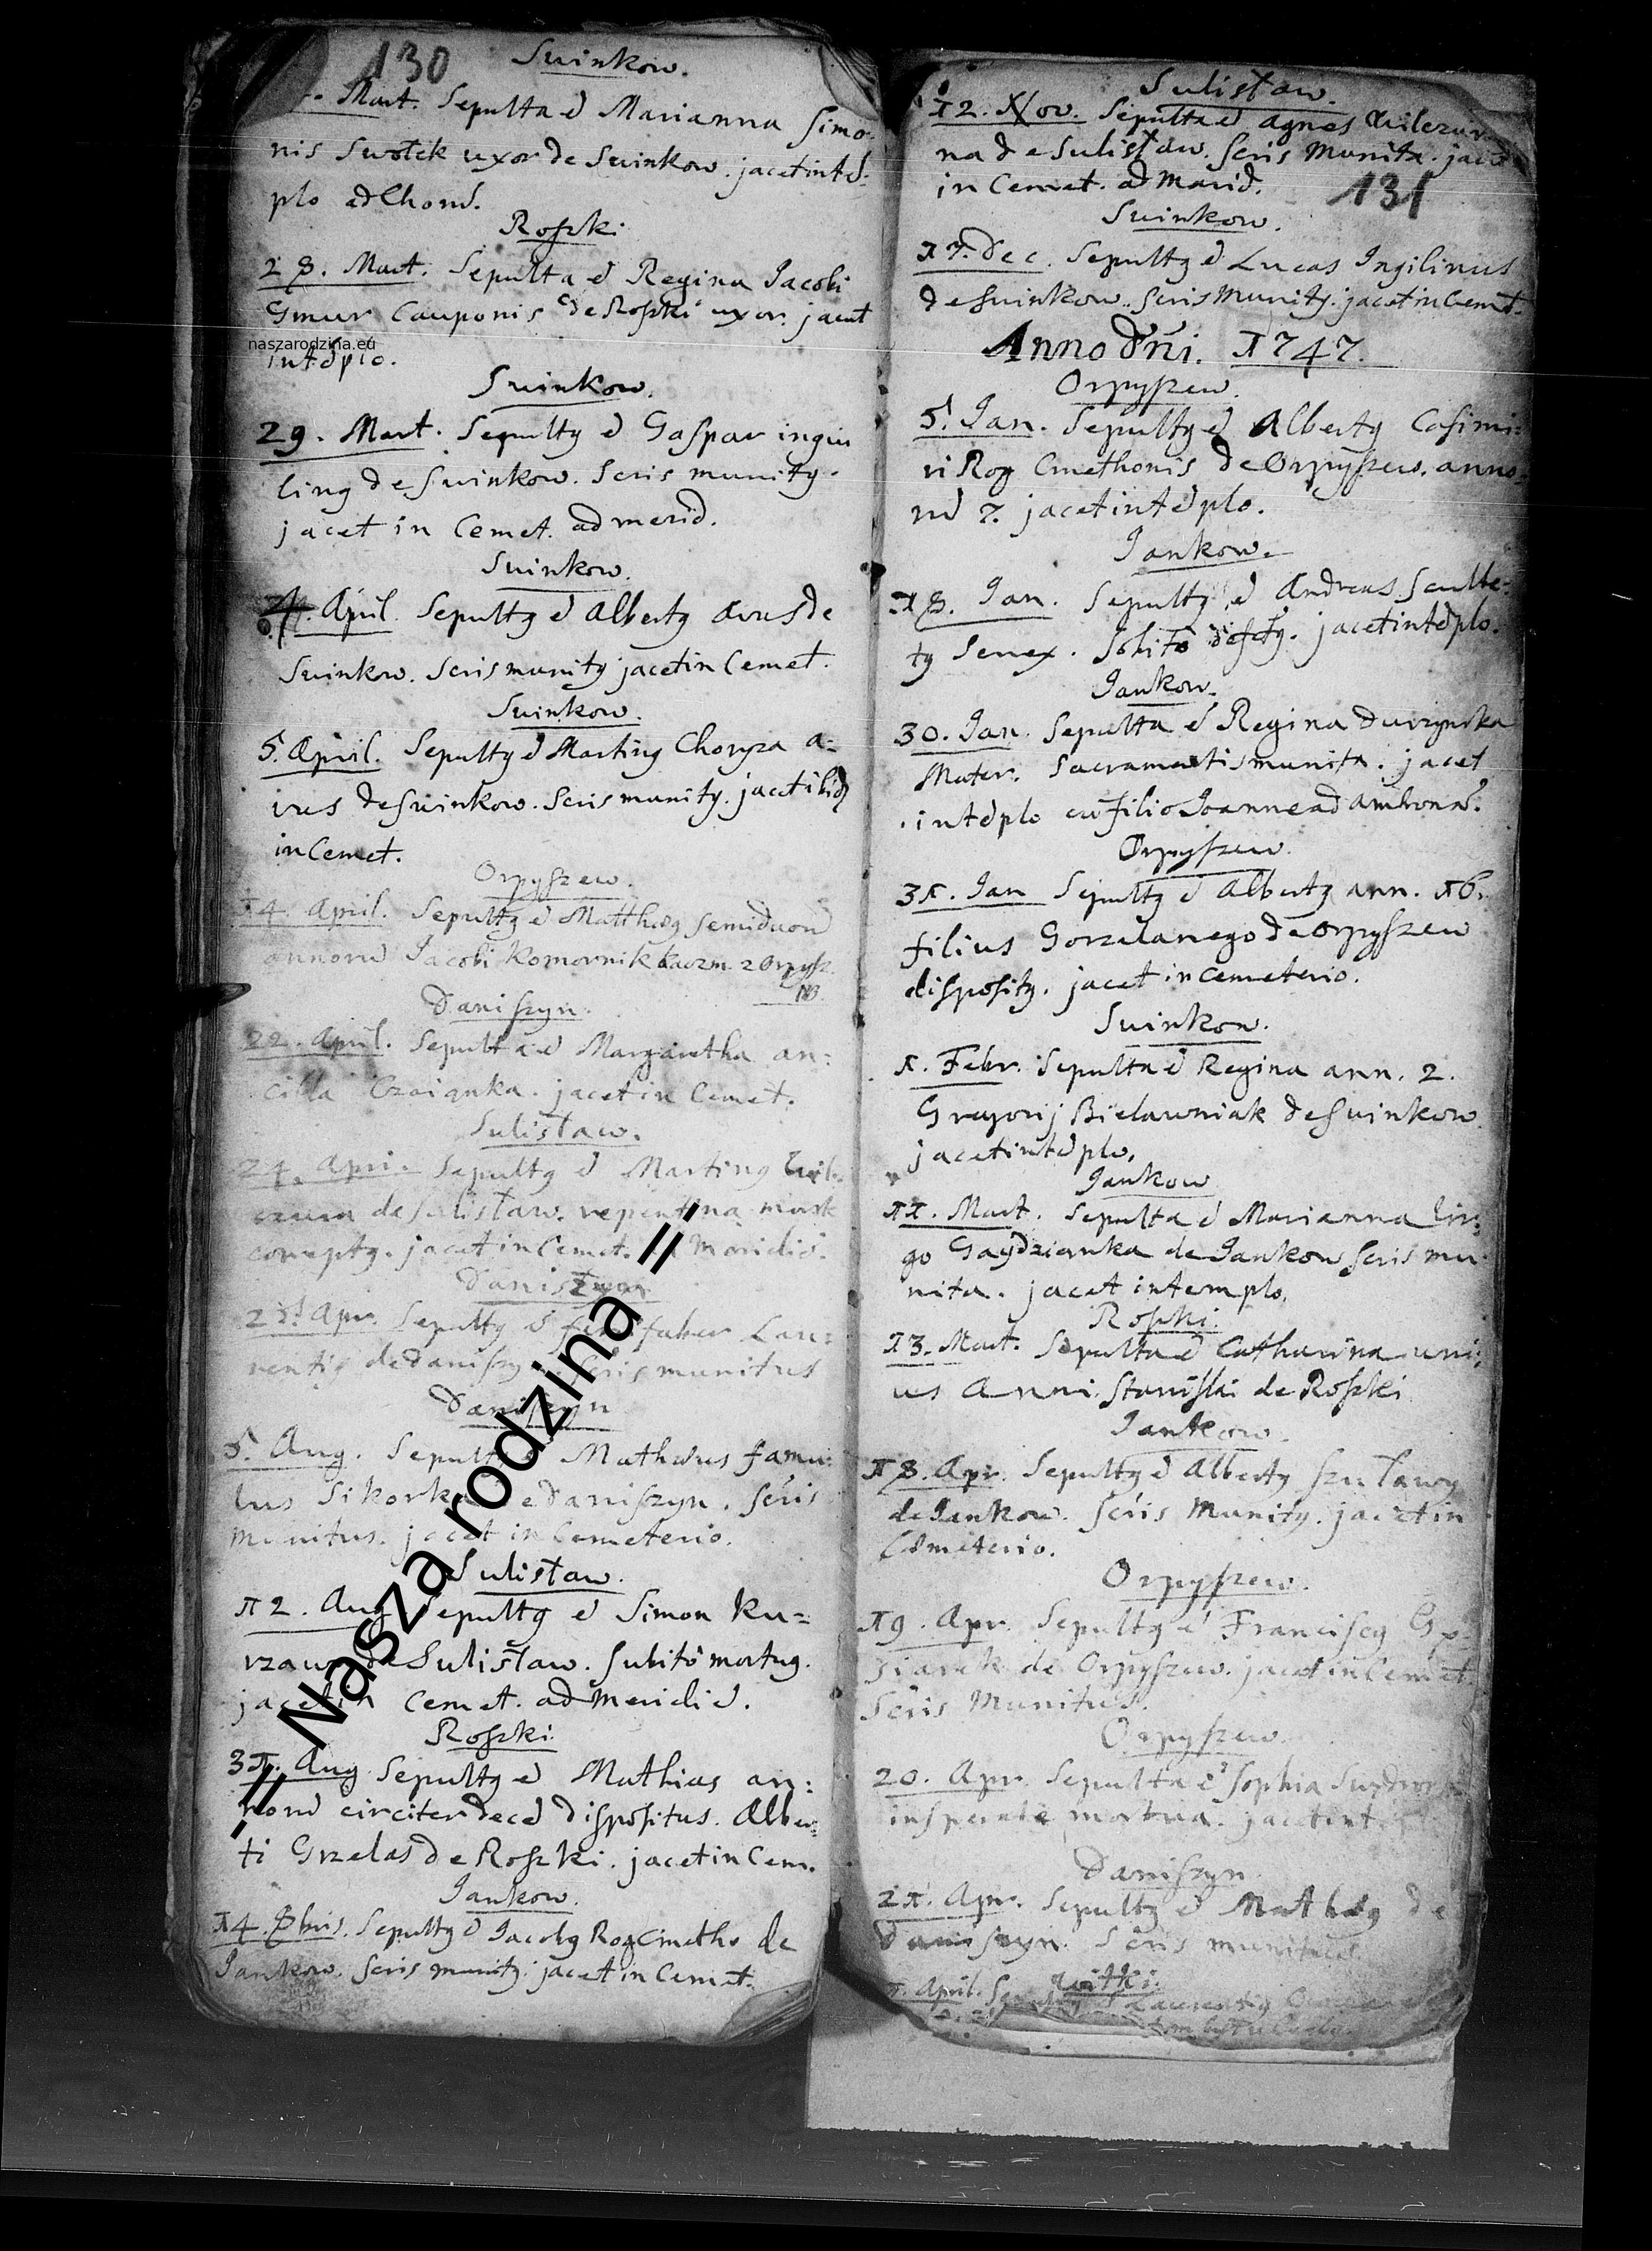 130
Suinkow.
Mart. Sepulta ē Marianna Simo-
nis Swotek uxor de Suinkow. jacet in tē-
plo ad Chorū.
Roszki
28. Mart. Sepulta ē Regina Iacobi
Gmur Cauponis de Roszki uxor. jacet
in tēplo.
naszarodzina.eu
Suinkow.
29. Mart. Sepultg ē Gaspar ingui
ling de Suinkow. Scris munitg.
jacet in Cemet. ad merid.
Suinkow.
April. Sepultg ē Albertg avus de
Suinkow. Scris munitg jacet in Cemet.
Suinkow.
5. April. Sepultg ē Marting Choryza a=
vus de Suinkow. Scris munitg. jacet ibid
in Cemet.
Orpyszew.
14. April. Sepultg ē Matthæg semiduorū
annorū Iacobi Komornik kaczm. z Orpysz.
NB.
Daniszyn.
22. April. Sepulta ē Margaretha an=
cilla Czaianka. jacet in Cemet.
Sulistaw.
24. April. Sepultg ē Marting
de Sulistaw. repentina morte
correptg. jacet in Cemet. ad Meridiē.
Daniszyn
Apr. Sepultg ē faber Lau=
rentig de Daniszyn Scris munitus
Daniszyn
5. Aug. Sepultg ē Mathæus famu=
lus Sikorka de Daniszyn. Scris
munitus. jacet in Cemeterio.
Sulistaw.
12. Aug. Sepultg ē Simon Ku=
rzawa de Sulistaw. subitō mortug.
jacet in Cemet. ad Meridiē.
Roszki.
31. Aug Sepultg ē Mathias an=
norū circiter decē dispositus. Alber=
ti Grzelas de Roszki. jacet in Cem.
Iankow.
14. 8bris. Sepultg ē Iacobg Rog Cmetho de
Iankow. Scris munitg. jacet in Cemet.
Nasza rodzina
Sulistaw.
12. Nov. Sepulta ē Agnes
na de Sulistaw. Scris Munita. jacet
in Cemet. ad Merid.
131
Suinkow.
17. Dec. Sepultg ē Lucas Ingilinus
de Suinkow. Scris Munitg. jacet in Cemet.
Anno Dñi. 1747.
Orpyszew.
5. Ian. Sepultg ē Albertg Casimi=
ri Rog Cmethonis de Orpyszew. anno=
rū 7. jacet in tēplo.
Iankow.
18. Ian. Sepultg ē Andreas Sculte=
tg Senex. jacet in tēplo.
Iankow.
30. Ian. Sepulta ē Regina Durzynska
Mater. Sacramentis munita. jacet
in tēplo cū filio Ioanne ad ambonē.
Orpyszew.
31. Ian Sepultg ē Albertg ann. 16.
filius Gorzelanego de Orpyszew
dispositg. jacet in Cemeterio.
Suinkow.
1. Febr. Sepulta ē Regina ann. 2.
Gregorij Bielawniak de Suinkow
jacet in tēplo.
Iankow
11. Mart. Sepulta ē Marianna Vir=
go Gaydzianka de Iankow Scris mu=
nita. jacet in templo.
Roszki.
13. Mart. Sepulta ē Catharina uni=
us Anni Stanislai de Roszki
Iankow.
18. Apr. Sepultg ē Albertg Szulawy
de Iankow. Scris Munitg. jacet in
Cemeterio.
Orpyszew.
19. Apr. Sepultg ē Franciscg
de Orpyszew. jacet in Cemet.
Scris Munitus.
Orpyszew.
20. Apr. Sepulta ē Sophia
mortua. jacet in
Daniszyn
21. Apr. Sepultg ē Mathæg de
Daniszyn. Scris munitus.
April.